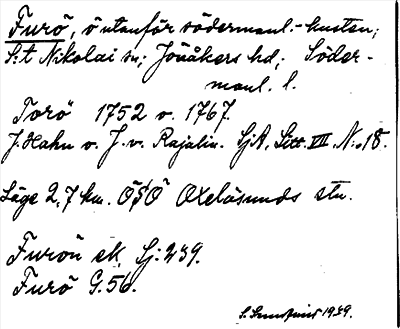 Furö, ö utanför södermanl.-kusten;
S:t Nikolai sn; Jönåkers hd; Söder-
manl. l.
Torö 1752 o. 1767.
J. Hahn o. J. v. Rajalin. SjA, Litt. VII. N:o 18.
Läge 2,7 km. ÖSÖ Oxelösunds stn.
Furön ek, Sj: 239.
Furö G. 56.
S. 1939.